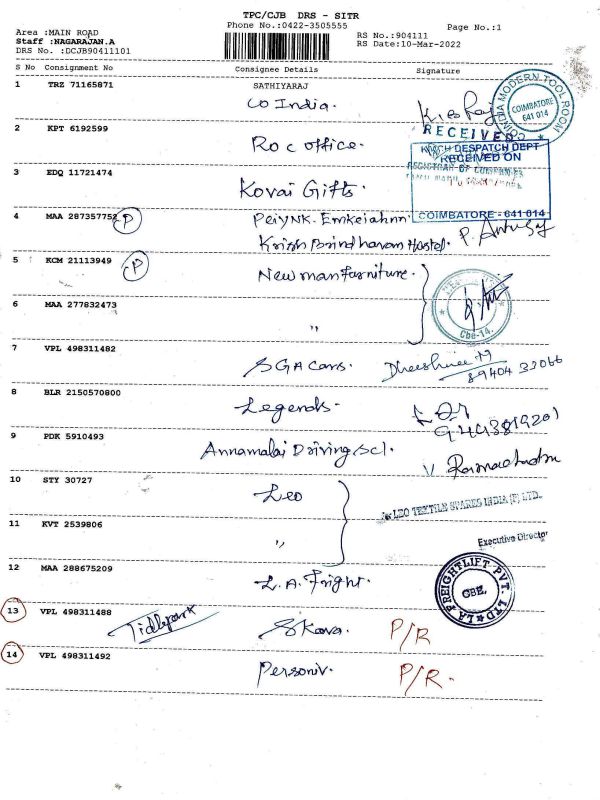 TPC/CJB DRS - SITR
Phone No.:0422-3505555
Page No.:1
Area :MAIN ROAD
Staff :NAGARAJAN.A
DRS No. :DCJB90411101
RS No.:904111
RS Date:10-Mar-2022
S No Consignment No Consignee Details Signature
1 TRZ 71165871 SATHIYARAJ
Co India.
COINDIA MODERN TOOL ROOM
COIMBATORE
641 014
2 KPT 6192599 Roc office.
RECEIVED
DESPATCH DEPT
RECEIVED ON
REGISTRAR OF COMPANIES
COIMBATORE - 641 014
3 EDQ 11721474 Kovai Gifts.
4 MAA 287357752 P
Krish Brindhavan Hostel.
5 KCM 21113949 P Newman furniture.
6 MAA 277832473 "
Cbe-14.
7 VPL 498311482 SGA Cars.
89404 33066
8 BLR 2150570800 Legends.
9 PDK 5910493 Annamalai Driving Scl.
10 STY 30727 Leo
LEO TEXTILE SPARES INDIA (P) LTD.
11 KVT 2539806 "
Executive Director
12 MAA 288675209 L.A. Fright.
LA FREIGHTLIFT PVT. LTD
CBE.
13 VPL 498311488 Tidlepark S Kava. P/R
14 VPL 498311492 Personiv. P/R.